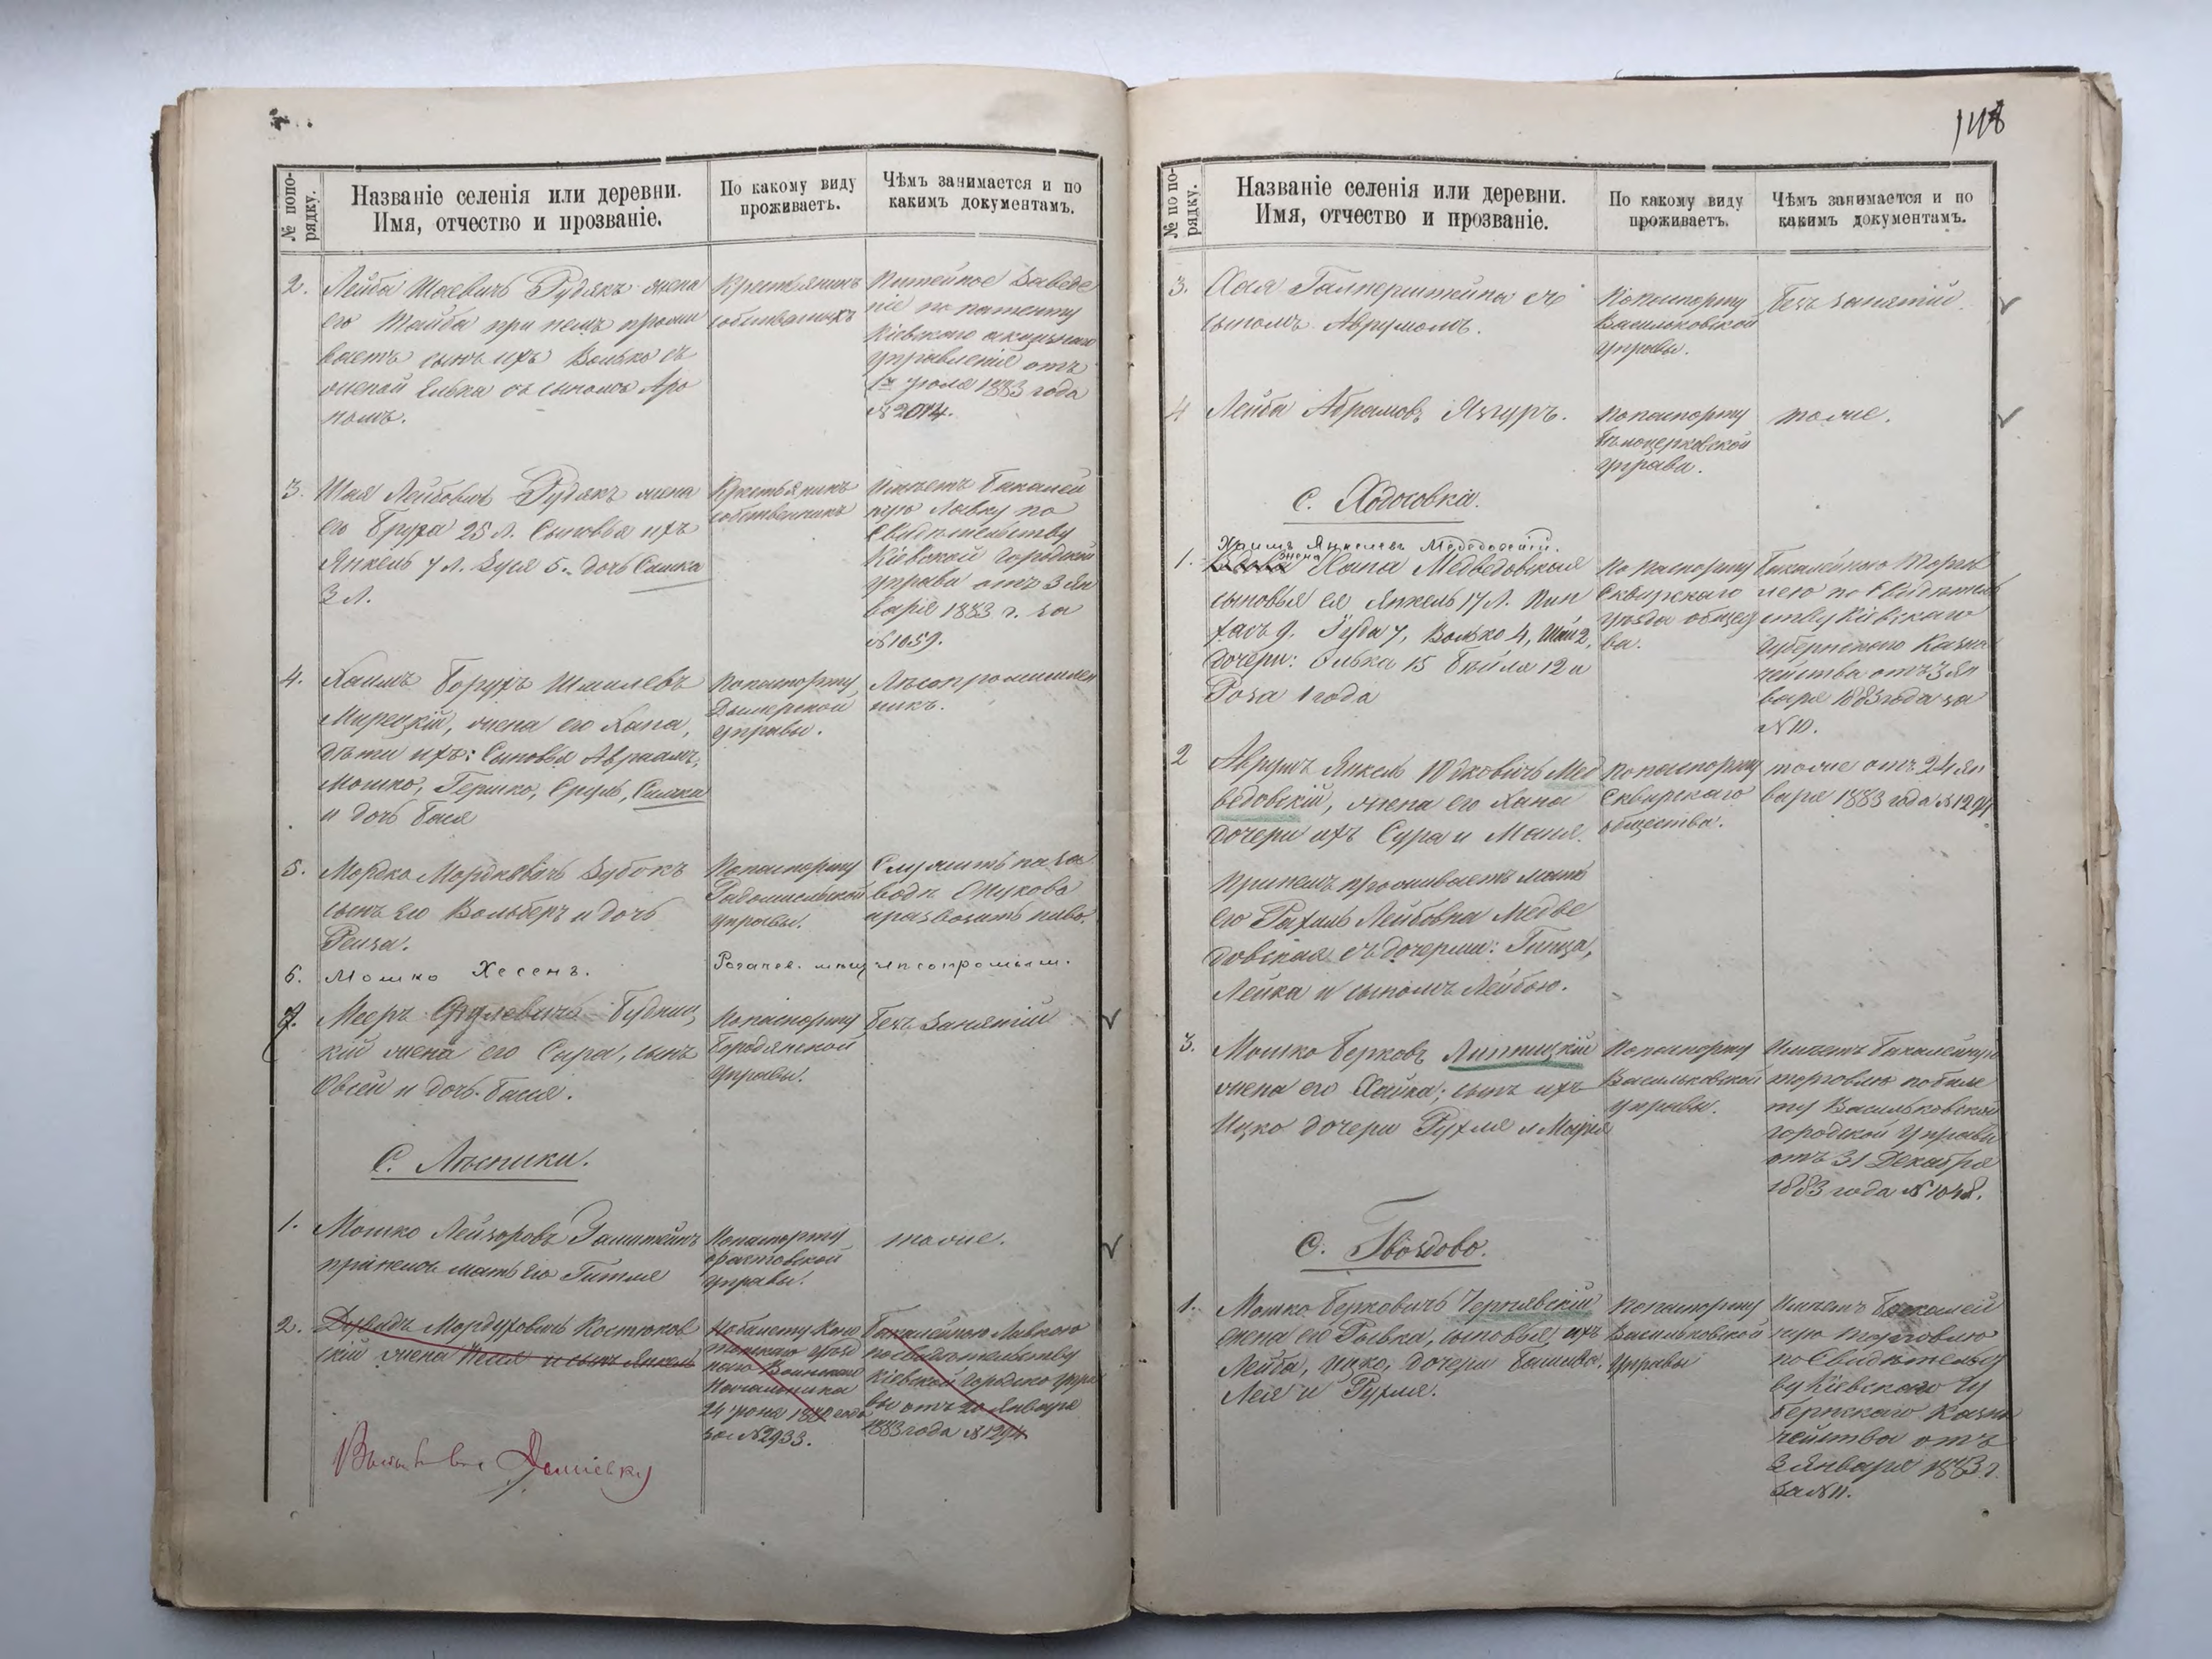 № попо-
рядку.
Названіе селенія или деревни.
Имя, отчество и прозваніе.
По какому виду
проживаетъ.
Чѣмъ занимается и по
какимъ документамъ.
2.
Лейба Шаевичъ Рудякъ жена
его Тайба при немъ прожи
ваетъ сынъ ихъ Волько съ
женой Елька съ сыномъ Аро
номъ.
Крестьянинъ
Питейное Заведе
ніе по патенту
Кіевскаго акцизнаго
управленія отъ
1883 года
№ 2014.
3.
Шая Лейбовичъ Рудякъ жена
его Бруха 25 л. Сыновья ихъ
Янкель 7 л. Зуся 5. дочь Симка
3 л.
Крестьянинъ
собственникъ
Имѣетъ бакалей
ную Лавку по
Свидѣтельству
Кіевской Городской
управы отъ 3 Ян
варя 1883 г. за
№ 1059.
4.
Хаимъ Борухъ Шмилевъ
Мирецкій, жена его Хана,
дѣти ихъ: Сыновья Авраамъ,
Мошко, Гершко, Сруль, Симха
и дочь Бася
По паспорту
Дымерской
управы.
Лѣсопромышлен
никъ.
5.
Мордко Мордковичъ Зубокъ
сынъ его Вольберъ и дочь
Рейза.
По паспорту
Радомысльской
управы.
Служитъ на за
водѣ
и развозитъ пиво.
6. Мошко Хесенъ.
лѣсопромышл.
7.
Мееръ Будниц
кій жена его Сара, сынъ
Овсей и дочь Бася.
По паспорту
Бородянской
управы.
Безъ Занятій
С. Лѣсники.
1.
Мошко Лейзоровъ
при немъ мать его Гитля
По паспорту
Фастовской
управы.
тоже.
2.
Дувидъ Мордуховичъ Костюков
скій жена Песя и сынъ Янкель
По билету
Воинскаго
Начальника
24 года
за № 2933.
Бакалейною Лавкою
по свидѣтельству
Кіевской Городской упра
вы отъ 20 Января
1883 года № 1294
148
№ по по-
рядку.
Названіе селенія или деревни.
Имя, отчество и прозваніе.
По какому виду
проживаетъ.
Чѣмъ занимается и по
какимъ документамъ.
3.
Хая Гальперштейна съ
сыномъ Аврумомъ.
По паспорту
Васильковской
управы.
Безъ занятій
4
Лейба Абрамовъ Язгуръ.
По паспорту
Бѣлоцерковской
управы.
тоже.
С. Ходосовка.
Хаимъ Янкелевъ
1.
Вдова жена Хана Медведовская
сыновья ея Янкель 17 л. Пин
хасъ 9. Іуда 7, Волько 4, Шая 2,
дочери: Элька 15 Бейла 12 и
Роза 1 года
По паспорту
Сквирскаго
уѣзда общест
ва.
Бакалейною Торгов
лею по Свидѣтель
ству Кіевскаго
Губернскаго Казна
чейства отъ 3 Ян
варя 1883 года за
№ 10.
2
Аврумъ Янкель Юдковичъ Мед
ведовскій, жена его Хана
дочери ихъ Сура и Маня.
При немъ проживаетъ мать
его Рахиль Лейбовна Медве
довская съ дочерьми: Гинда,
Лейка и сыномъ Лейбою.
По паспорту
Сквирскаго
общества.
тоже отъ 24 Ян
варя 1883 года № 1294
3.
Мошко Берковъ Липницкій
жена его Хайка; сынъ ихъ
Ицко дочери Рухля и Марія
По паспорту
Васильковской
управы.
Имѣетъ бакалейную
торговлю по биле
ту Васильковской
городской Управы
отъ 31 Декабря
1883 года № 1048.
С. Гвоздово.
1.
Мошко Берковичъ Чернявскій
жена его Ривка, сыновья ихъ
Лейба, Ицко, дочери
Лея и Рухля.
По паспорту
Васильковской
Управы
Имѣетъ бакалей
ную торговлю
по Свидѣтельст
ву Кіевскаго Гу
бернскаго Казна
чейства отъ
3 Января 1883 г.
за № 11.